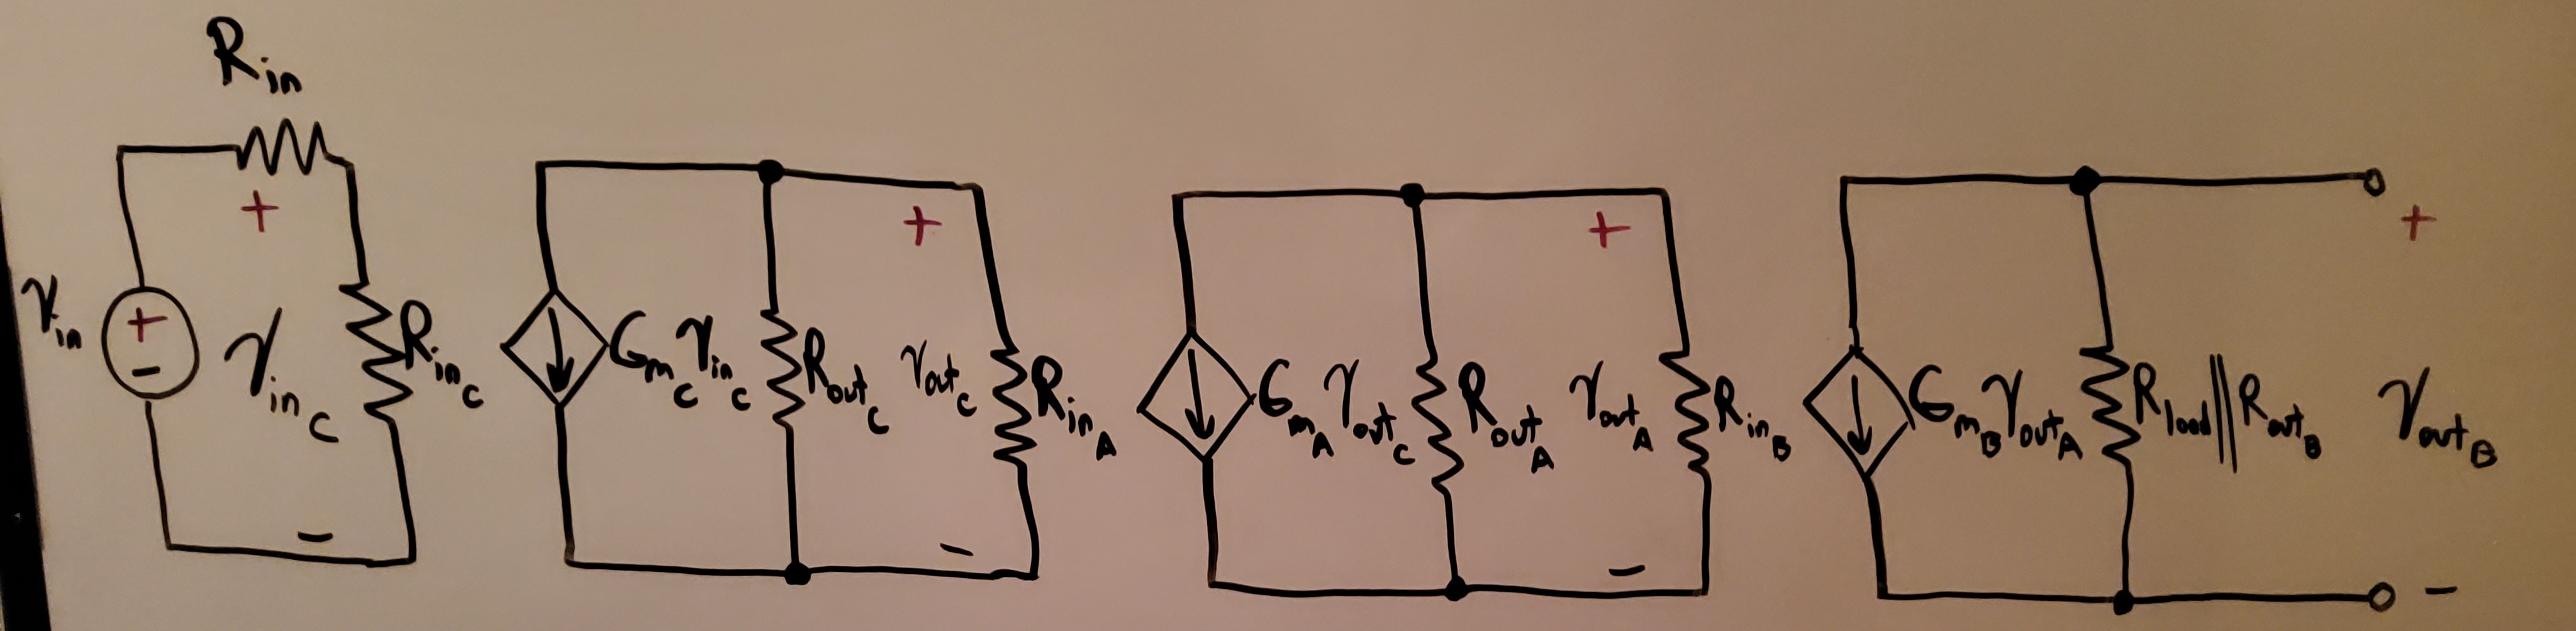 R_in
+
V_in
+
-
V_in_C
R_in_C
-
G_m_C V_in_C
R_out_C
+
V_out_C
-
R_in_A
G_m_A V_out_C
R_out_A
+
V_out_A
-
R_in_B
G_m_B V_out_A
R_load||R_out_B
+
V_out_B
-